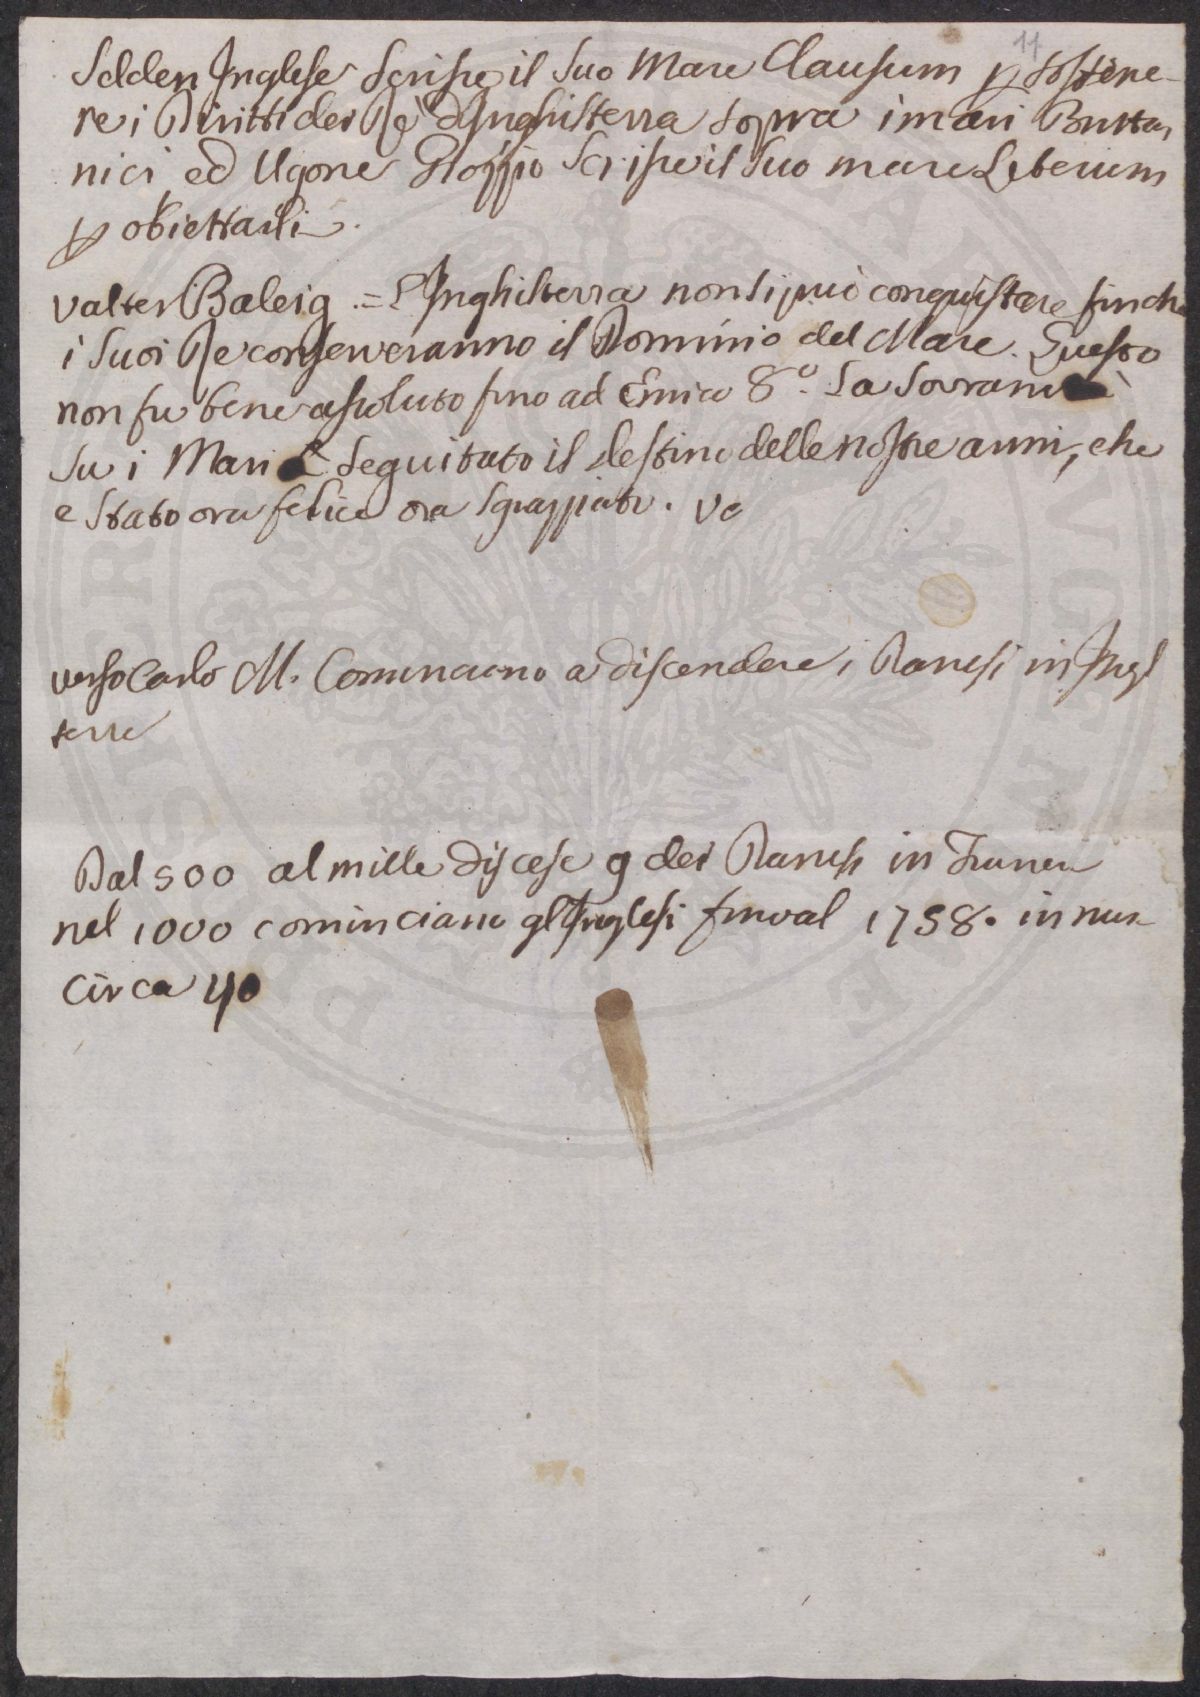 11
Selden Inglese scrisse il suo Mare Clausum p sostene-
re i Diritti dei Rè d'Inghilterra sopra i mari Brittan
nici, ed Ugone Grozzio scrisse il suo mare Liberum
p obiettarli.
Valter Raleig = L'Inghilterra non si può conquistare finche
i suoi Re conserveranno il Dominio del Mare. Questo
non fu bene assoluto fino ad Enrico 8º. La Sovranità
su i Mari è seguitato il destino delle nostre armi, che
e stato ora felice ora sgraziato. Ve
verso Carlo M. Cominciano a discendere i Danesi in Ingl
terre
Dal 500 al mille discese 9 dei Danesi in Francia
nel 1000 cominciano gl'Inglesi fino al 1758. in num
circa 40